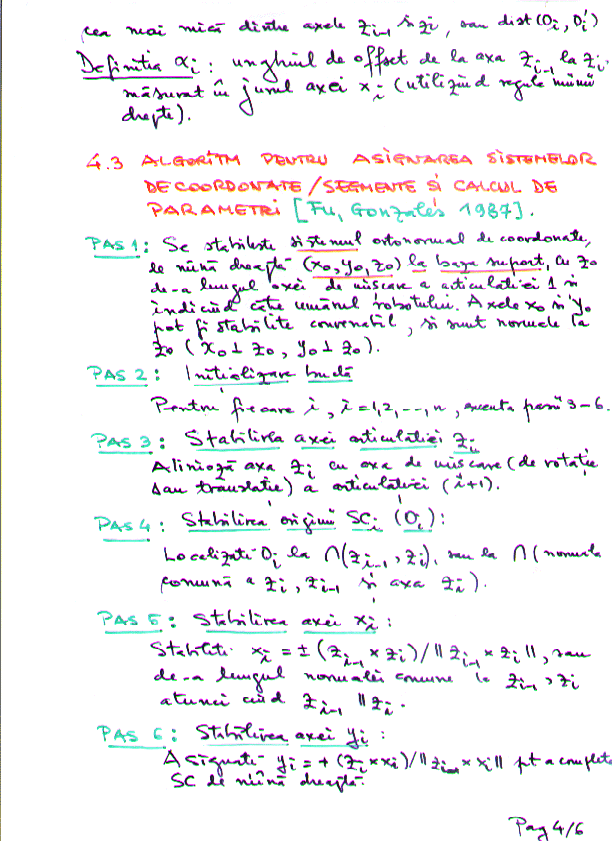 cea mai mică dintre axele z_{i-1} și z_i, sau dist(O_i, O_i')
Definiția α_i: unghiul de offset de la axa z_{i-1} la z_i
măsurat în jurul axei x_i (utilizînd regula mîinii
drepte).
4.3 ALGORITM PENTRU ASIGNAREA SISTEMELOR
DE COORDONATE/SEGMENTE ȘI CALCUL DE
PARAMETRI [Fu, Gonzales 1987].
PAS 1: Se stabilește sistemul ortonormal de coordonate,
de mînă dreaptă (x_0, y_0, z_0) la baza suport, cu z_0
de-a lungul axei de mișcare a articulației 1 și
indicînd către umărul robotului. Axele x_0 și y_0
pot fi stabilite convenabil, și sunt normale la
z_0 (x_0 ⊥ z_0, y_0 ⊥ z_0).
PAS 2: Inițializare buclă
Pentru fiecare i, i=1,2,--,n, execută pașii 3-6.
PAS 3: Stabilirea axei articulației z_i
Aliniază axa z_i cu axa de mișcare (de rotație
sau translație) a articulației (i+1).
PAS 4: Stabilirea originii SC_i (O_i):
Localizați O_i la ∩(z_{i-1}, z_i), sau la ∩(normala
comună a z_i, z_{i-1} și axa z_i).
PAS 5: Stabilirea axei x_i:
Stabiliți x_i = ±(z_{i-1} × z_i)/‖z_{i-1} × z_i‖, sau
de-a lungul normalei comune la z_{i-1}, z_i
atunci cînd z_{i-1} ‖ z_i.
PAS 6: Stabilirea axei y_i:
Asignați y_i = +(z_i × x_i)/‖z_{i-1} × x_i‖ pt a completa
SC de mînă dreaptă.
Pag 4/6